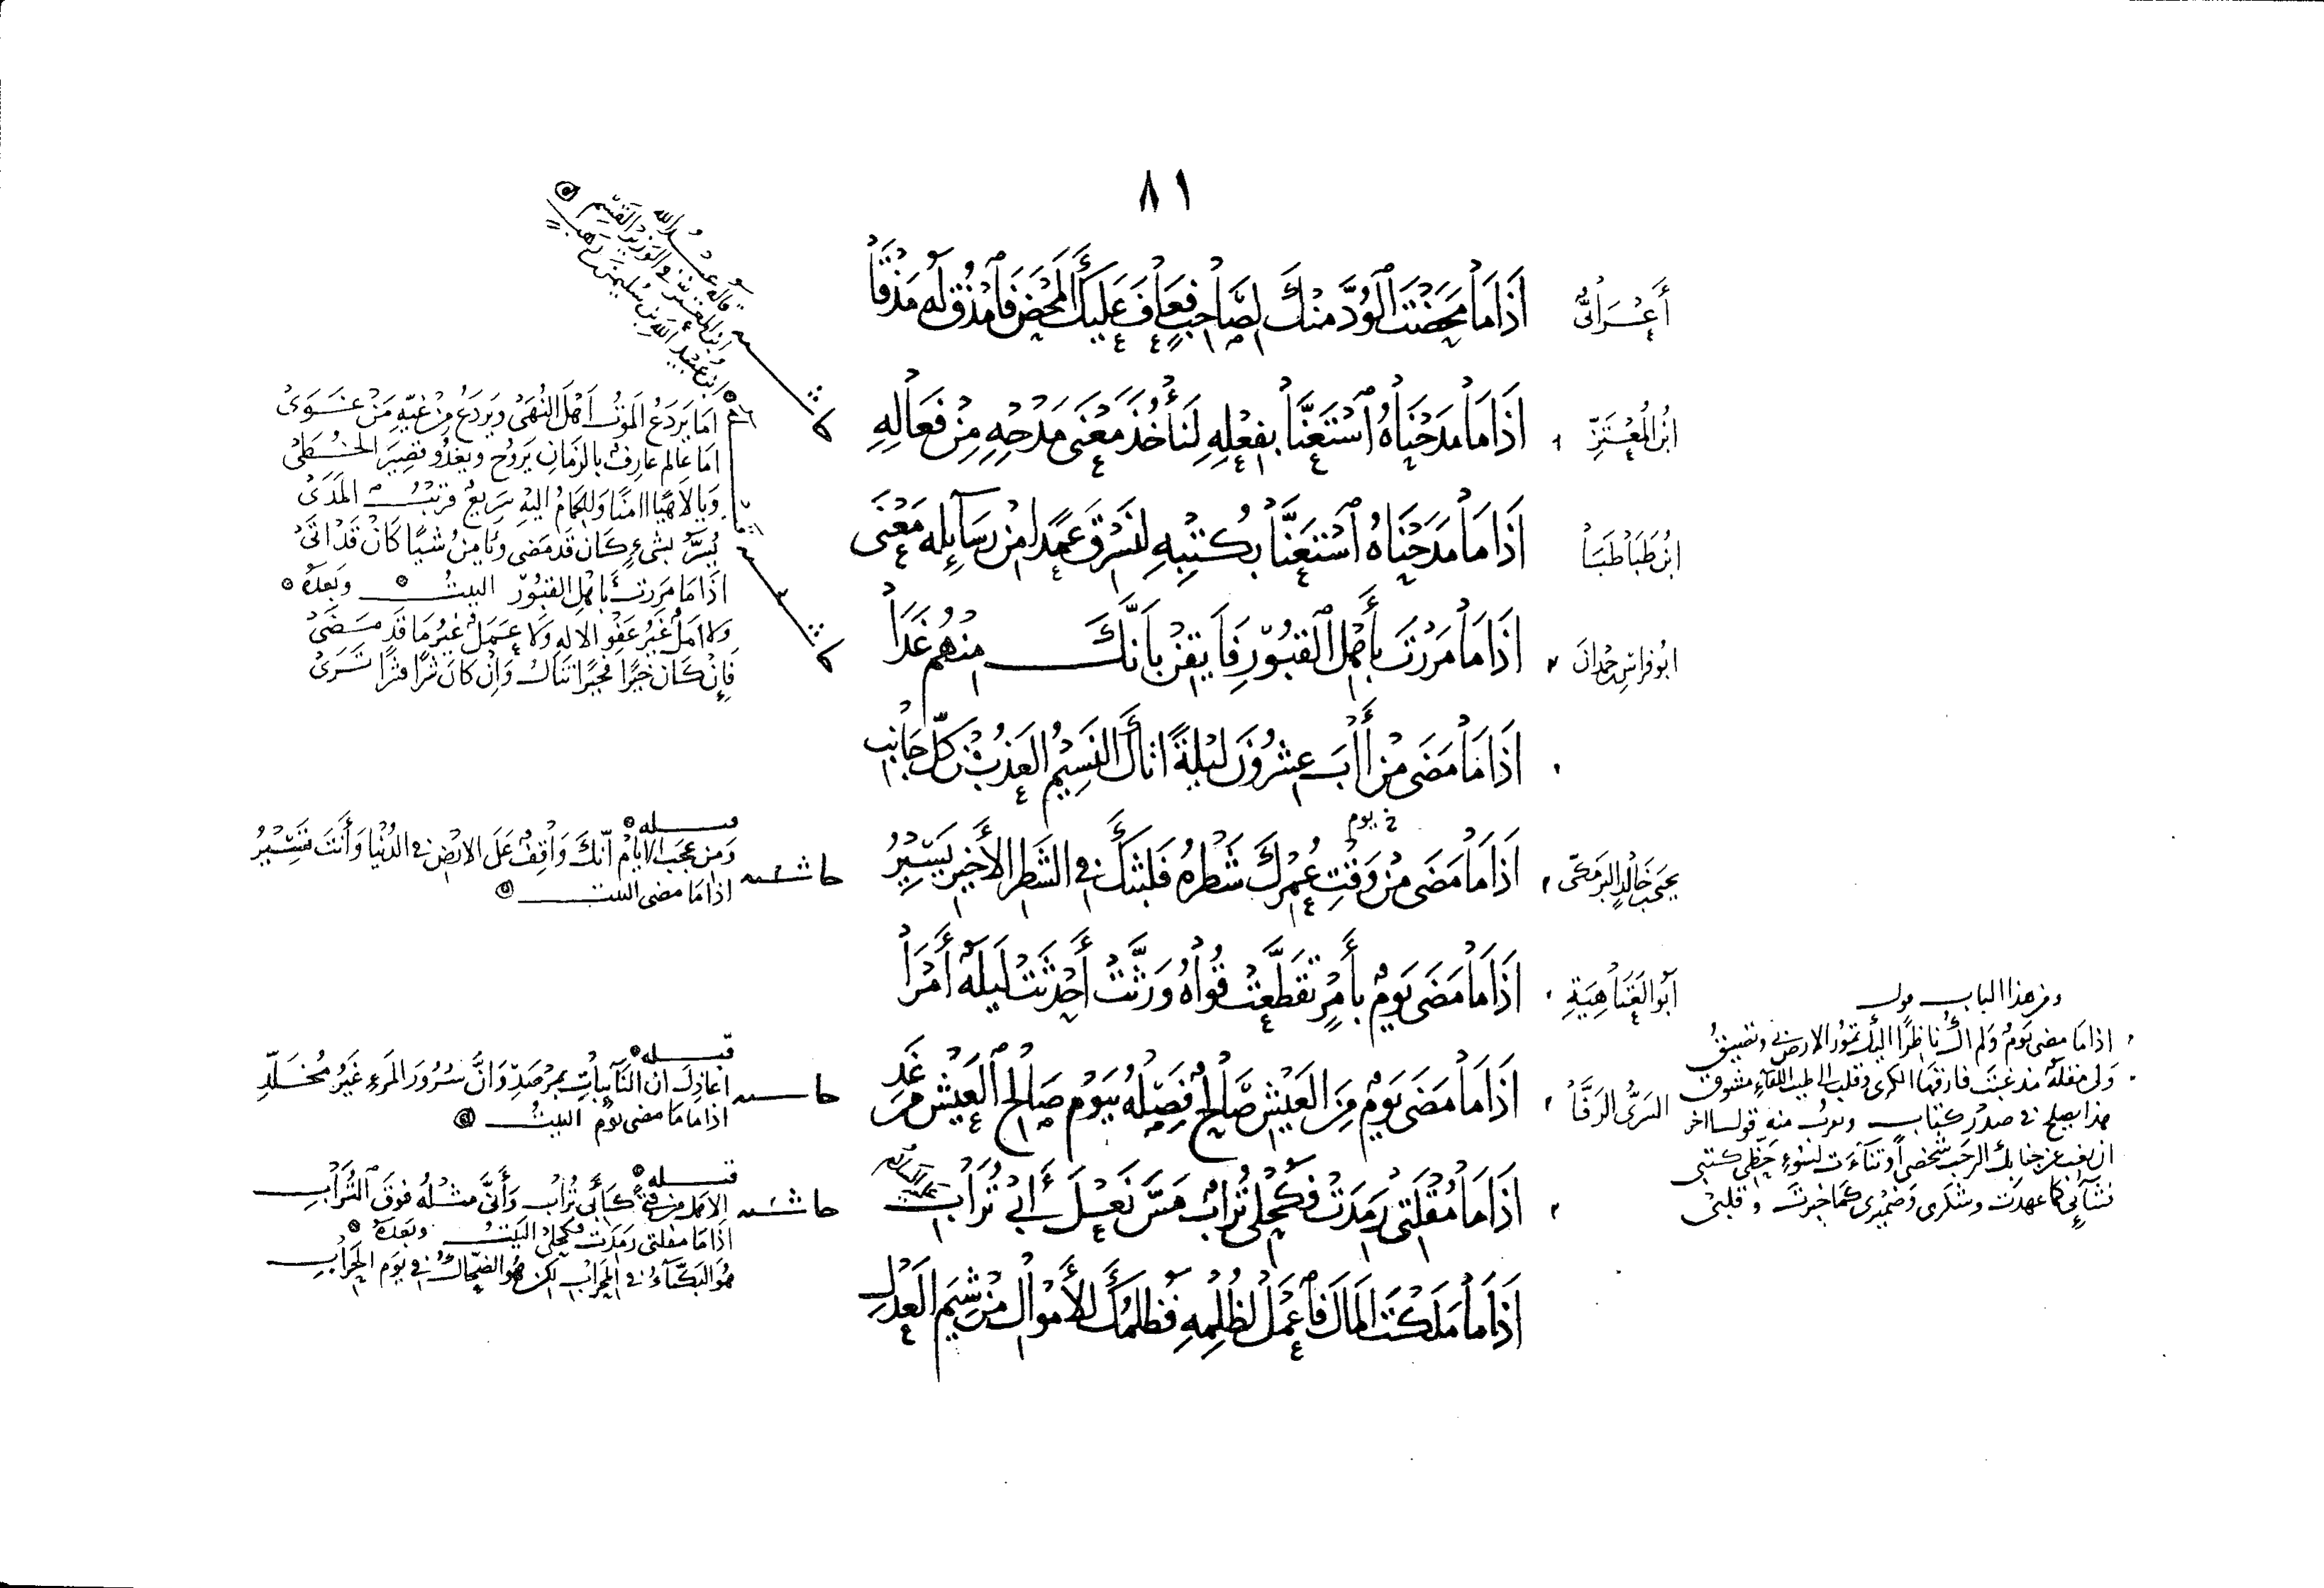 ٨١
أَعْرَابِيٌّ
إِذَا مَا مَحَضْتَ الْوُدَّ مِنْكَ لِصَاحِبٍ فَعَافَ عَلَيْكَ الْمَحْضَ فَامْذُقْ لَهُ مَذْقَا
ابْنُ الْمُعْتَزِّ
إِذَا مَا مَدَحْنَاهُ اسْتَعَنَّا بِفِعْلِهِ لِنَأْخُذَ مَعْنَى مَدْحِهِ مِنْ فَعَالِهِ
ابْنُ طَبَاطَبَا
إِذَا مَا مَدَحْنَاهُ اسْتَعَنَّا بِكُتْبِهِ لِنَسْرِقَ عَمْدًا مِنْ رَسَائِلِهِ مَعْنَى
أَبُو فِرَاسِ حَمْدَانَ
إِذَا مَا مَرَرْتَ بِأَهْلِ الْقُبُورِ فَأَيْقِنْ بِأَنَّكَ مِنْهُمْ غَدَا
إِذَا مَا مَضَى مِنْ آبَ عِشْرُونَ لَيْلَةً أَتَاكَ النَّسِيمُ الْعَذْبُ مِنْ كُلِّ جَانِبِ
خ يوم
يَحْيَى بْنُ خَالِدٍ الْبَرْمَكِيُّ
إِذَا مَا مَضَى مِنْ وَقْتِ عُمْرِكَ شَطْرُهُ فَلُبْثُكَ فِي الشَّطْرِ الْأَخِيرِ يَسِيرُ
أَبُو الْعَتَاهِيَةِ
إِذَا مَا مَضَى يَوْمٌ بِأَمْرٍ تَقَطَّعَتْ قُوَاهُ وَرَثَّتْ أَحْدَثَتْ لَيْلَةٌ أَمْرَا
السَّرِيُّ الرَّفَّا
إِذَا مَا مَضَى يَوْمٌ مِنَ الْعَيْشِ صَالِحٌ فَصِلْهُ بِيَوْمٍ صَالِحِ الْعَيْشِ مِنْ غَدِ
إِذَا مَا مُقْلَتِي رَمِدَتْ فَكُحْلِي تُرَابٌ مَسَّ نَعْلَ أَبِي تُرَابِ
عليه السلام
إِذَا مَا مَلَكْتَ الْمَالَ فَاعْمَلْ لِظُلْمِهِ فَظُلْمُكَ لِلْأَمْوَالِ مِنْ شِيَمِ الْعَدْلِ
قاله عبد الله
ابن المعتز في الوزير القسم
ابن عبيد الله بن سليمن بن وهب
أَمَا يَرْدَعُ الْمَوْتُ أَهْلَ النُّهَى وَيَرْدَعُ مِنْ غَيِّهِ مَنْ غَوَى
أَمَا عَالِمٌ عَارِفٌ بِالزَّمَانِ يَرُوحُ وَيَغْدُو قَصِيرَ الْخُطَى
وَيَا لَاهِيًا آمِنًا وَالْحِمَامُ إِلَيْهِ سَرِيعٌ قَرِيبُ الْمَدَى
يُسَرُّ بِشَيْءٍ كَانَ قَدْ مَضَى وَيَأْمَنُ شَيْئًا كَانَ قَدْ أَتَى
إِذَا مَا مَرَرْتَ بِأَهْلِ الْقُبُورِ البيت وَبَعْدَهُ
وَلَا أَمَلٌ غَيْرُ عَفْوِ الْإِلَهِ وَلَا عَمَلٌ غَيْرُ مَا قَدْ مَضَى
فَإِنْ كَانَ خَيْرًا فَخَيْرًا تَنَالُ وَإِنْ كَانَ شَرًّا فَشَرًّا تَرَى
حاشية
قبله
وَمِنْ عَجَبِ الْأَيَّامِ أَنَّكَ وَاقِفٌ عَلَى الْأَرْضِ فِي الدُّنْيَا وَأَنْتَ تَسِيرُ
إذا ما مضى البيت
حاشية
قبله
أَعَاذِلَ إِنَّ النَّائِبَاتِ بِمَرْصَدٍ وَإِنَّ سُرُورَ الْمَرْءِ غَيْرُ مُخَلَّدِ
إذا ما مضى يوم البيت
حاشية
قبله
كَأَبِي تُرَابٍ وَأَنَّى مِثْلُهُ فَوْقَ التُّرَابِ
إِذَا مَا مقلتي رَمِدَتْ فكحلي البيت وَبَعْدَهُ
هُوَ الْبَكَّاءُ فِي الْمِحْرَابِ لَكِنْ هُوَ الضَّحَّاكُ فِي يَوْمِ الْحِرَابِ
ومن هذا الباب قول
إذا ما مضى يَوْمٌ وَلَمْ أَكُ نَاظِرًا إليك تمور الأرض بي وتضيقُ
ولي مقلة مذ غبت فارقها الكرى وقلب إلى طيب اللقاء مشوق
هذا يصلح في صدر كتاب وقرب منه قول آخر
إن يغب عن جنابك الرحب شخصي أو تناءت لسوء حظي كتبي
فثنائي كما عهدت وشكري وضميري كما خبرت وقلبي